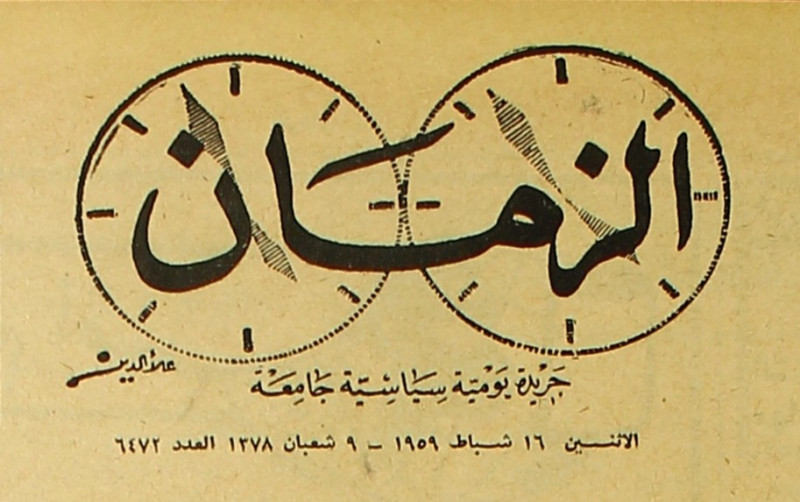 الزمان
علاء الدين
جريدة يومية سياسية جامعة
الاثنين ١٦ شباط ١٩٥٩ - ٩ شعبان ١٣٧٨ العدد ٦٤٧٢